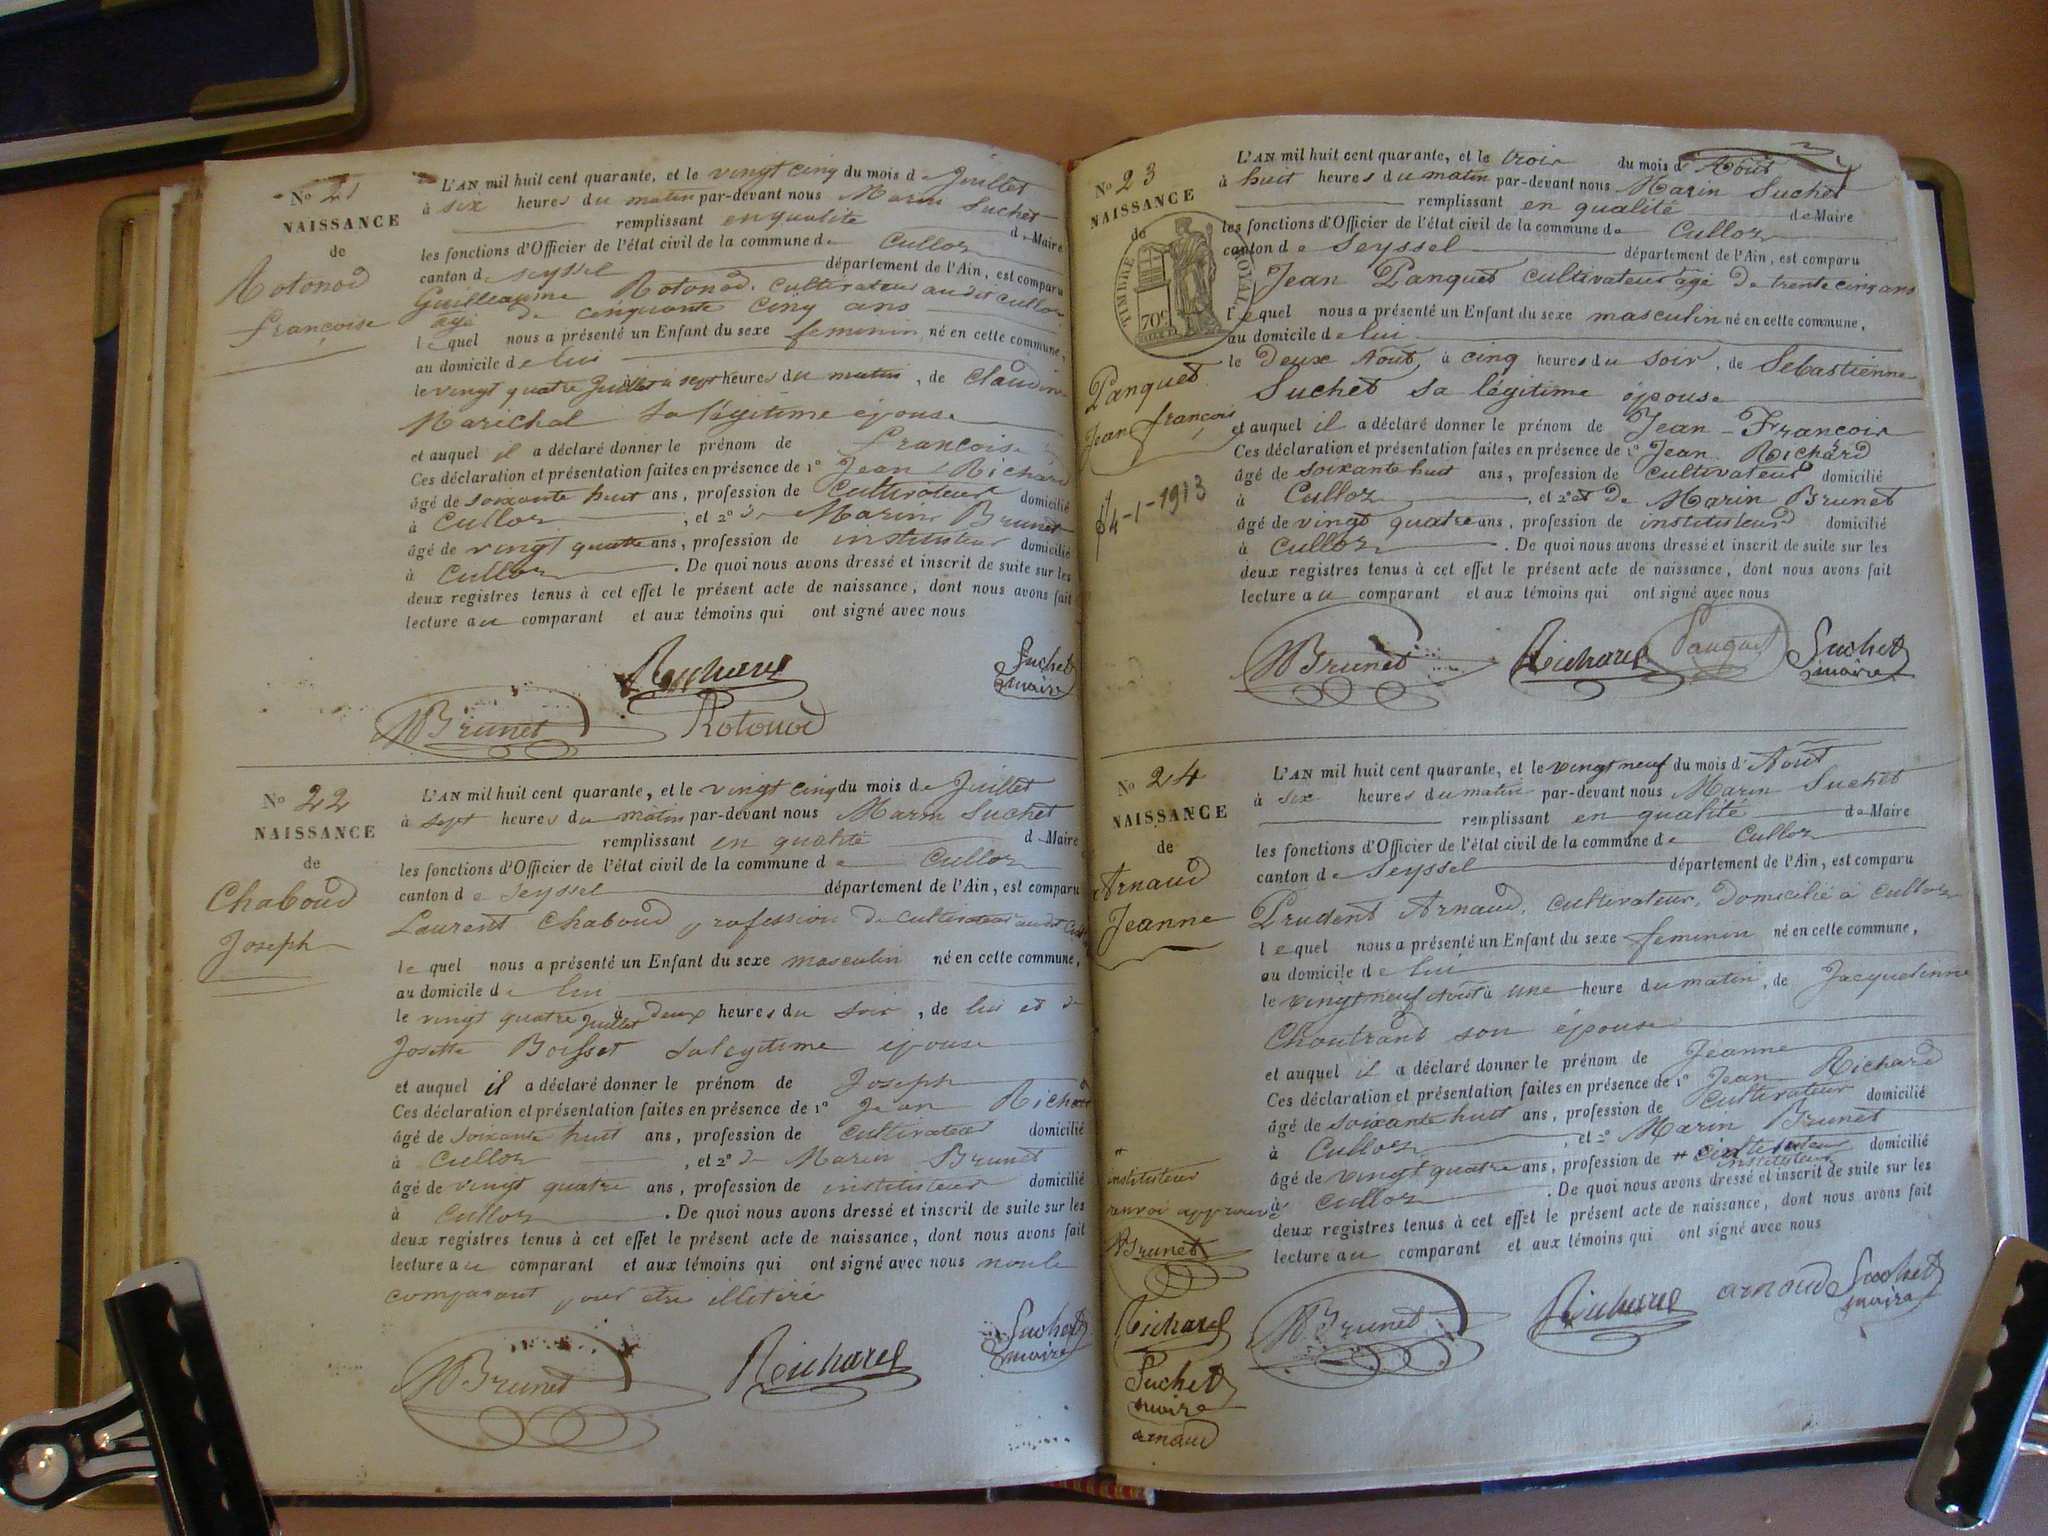 No 21
NAISSANCE
de
Rotonod
françoise
L'AN mil huit cent quarante, et le vingt cinq du mois de Juillet
à six heures du matin par-devant nous Marin Suchet
remplissant en qualité de Maire
les fonctions d'Officier de l'état civil de la commune de Culloz
canton de Seyssel département de l'Ain, est comparu
Guilleaume Rotonod, cultivateur audit culloz
âgé de cinquante cinq ans
lequel nous a présenté un Enfant du sexe feminin, né en cette commune,
au domicile de lui
le vingt quatre Juillet à sept heures du matin, de Claudine
Marichal sa légitime épouse
et auquel il a déclaré donner le prénom de françoise
Ces déclaration et présentation faites en présence de 1º Jean Richard
âgé de soixante huit ans, profession de cultivateur domicilié
à Culloz, et 2º de Marin Brunet
âgé de vingt quatre ans, profession de instituteur domicilié
à Culloz. De quoi nous avons dressé et inscrit de suite sur les
deux registres tenus à cet effet le présent acte de naissance, dont nous avons fait
lecture au comparant et aux témoins qui ont signé avec nous
Richard Suchet
maire
MBrunet Rotonod
No 22
NAISSANCE
de
Chaboud
Joseph
L'AN mil huit cent quarante, et le vingt cinq du mois de Juillet
à sept heures du matin par-devant nous Marin Suchet
remplissant en qualité de Maire
les fonctions d'Officier de l'état civil de la commune de Culloz
canton de Seyssel département de l'Ain, est comparu
Laurent Chaboud profession de cultivateur audit
lequel nous a présenté un Enfant du sexe masculin né en cette commune,
au domicile de lui
le vingt quatre Juillet à deux heures du soir, de lui et de
Josette Boisset sa legitime épouse
et auquel il a déclaré donner le prénom de Joseph
Ces déclaration et présentation faites en présence de 1º Jean Richard
âgé de soixante huit ans, profession de cultivateur domicilié
à Culloz, et 2º de Marin Brunet
âgé de vingt quatre ans, profession de instituteur domicilié
à Culloz. De quoi nous avons dressé et inscrit de suite sur les
deux registres tenus à cet effet le présent acte de naissance, dont nous avons fait
lecture au comparant et aux témoins qui ont signé avec nous non le
comparant pour être illitéré
MBrunet Richard Suchet
maire
No 23
NAISSANCE
de
TIMBRE ROYAL
70c
Panquet
Jean françois
4-1-1913
L'AN mil huit cent quarante, et le trois du mois d'Août
à huit heures du matin par-devant nous Marin Suchet
remplissant en qualité de Maire
les fonctions d'Officier de l'état civil de la commune de Culloz
canton de Seyssel département de l'Ain, est comparu
Jean Panquet cultivateur âgé de trente cinq ans
lequel nous a présenté un Enfant du sexe masculin né en cette commune,
au domicile de lui
le Deux Août, à cinq heures du soir, de Sebastienne
Suchet sa légitime épouse
et auquel il a déclaré donner le prénom de Jean-François
Ces déclaration et présentation faites en présence de 1º Jean Richard
âgé de soixante huit ans, profession de cultivateur domicilié
à Culloz, et 2º de Marin Brunet
âgé de vingt quatre ans, profession de instituteur domicilié
à Culloz. De quoi nous avons dressé et inscrit de suite sur les
deux registres tenus à cet effet le présent acte de naissance, dont nous avons fait
lecture au comparant et aux témoins qui ont signé avec nous
MBrunet Richard Panquet Suchet
maire
No 24
NAISSANCE
de
Arnaud
Jeanne
L'AN mil huit cent quarante, et le vingt neuf du mois d'Août
à six heures du matin par-devant nous Marin Suchet
remplissant en qualité de Maire
les fonctions d'Officier de l'état civil de la commune de Culloz
canton de Seyssel département de l'Ain, est comparu
Prudent Arnaud, cultivateur, domicilié à Culloz
lequel nous a présenté un Enfant du sexe feminin né en cette commune,
au domicile de lui
le vingt neuf Août à une heure du matin, de Jacquelinne
Choutrand son épouse
et auquel il a déclaré donner le prénom de Jeanne
Ces déclaration et présentation faites en présence de 1º Jean Richard
âgé de soixante huit ans, profession de cultivateur domicilié
à Culloz, et 2º Marin Brunet
âgé de vingt quatre ans, profession de # cultivateur domicilié
instituteur
à Culloz. De quoi nous avons dressé et inscrit de suite sur les
deux registres tenus à cet effet le présent acte de naissance, dont nous avons fait
lecture au comparant et aux témoins qui ont signé avec nous
MBrunet Richard arnaud Suchet
maire
#
instituteur
renvoi approuvé
Brunet
Richard
Suchet
maire
arnaud